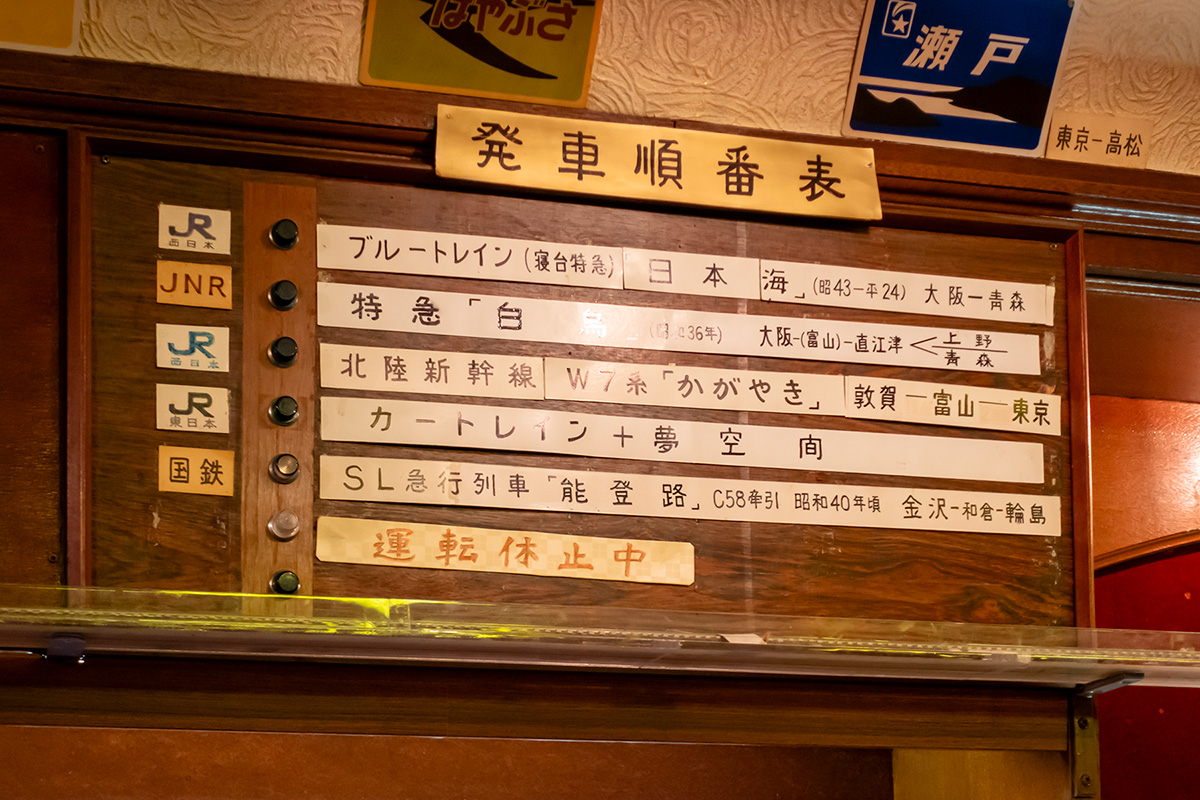 はやぶさ
瀬戸
東京ー高松
発車順番表
JR 西日本
ブルートレイン(寝台特急)「日本海」(昭43ー平24) 大阪ー青森
JNR
特急「白鳥」(昭和36年) 大阪ー(富山)ー直江津<上野 青森
JR 西日本
北陸新幹線 W7系「かがやき」 敦賀ー富山ー東京
JR 東日本
カートレイン+夢空間
国鉄
SL急行列車「能登路」C58牽引 昭和40年頃 金沢ー和倉ー輪島
運転休止中